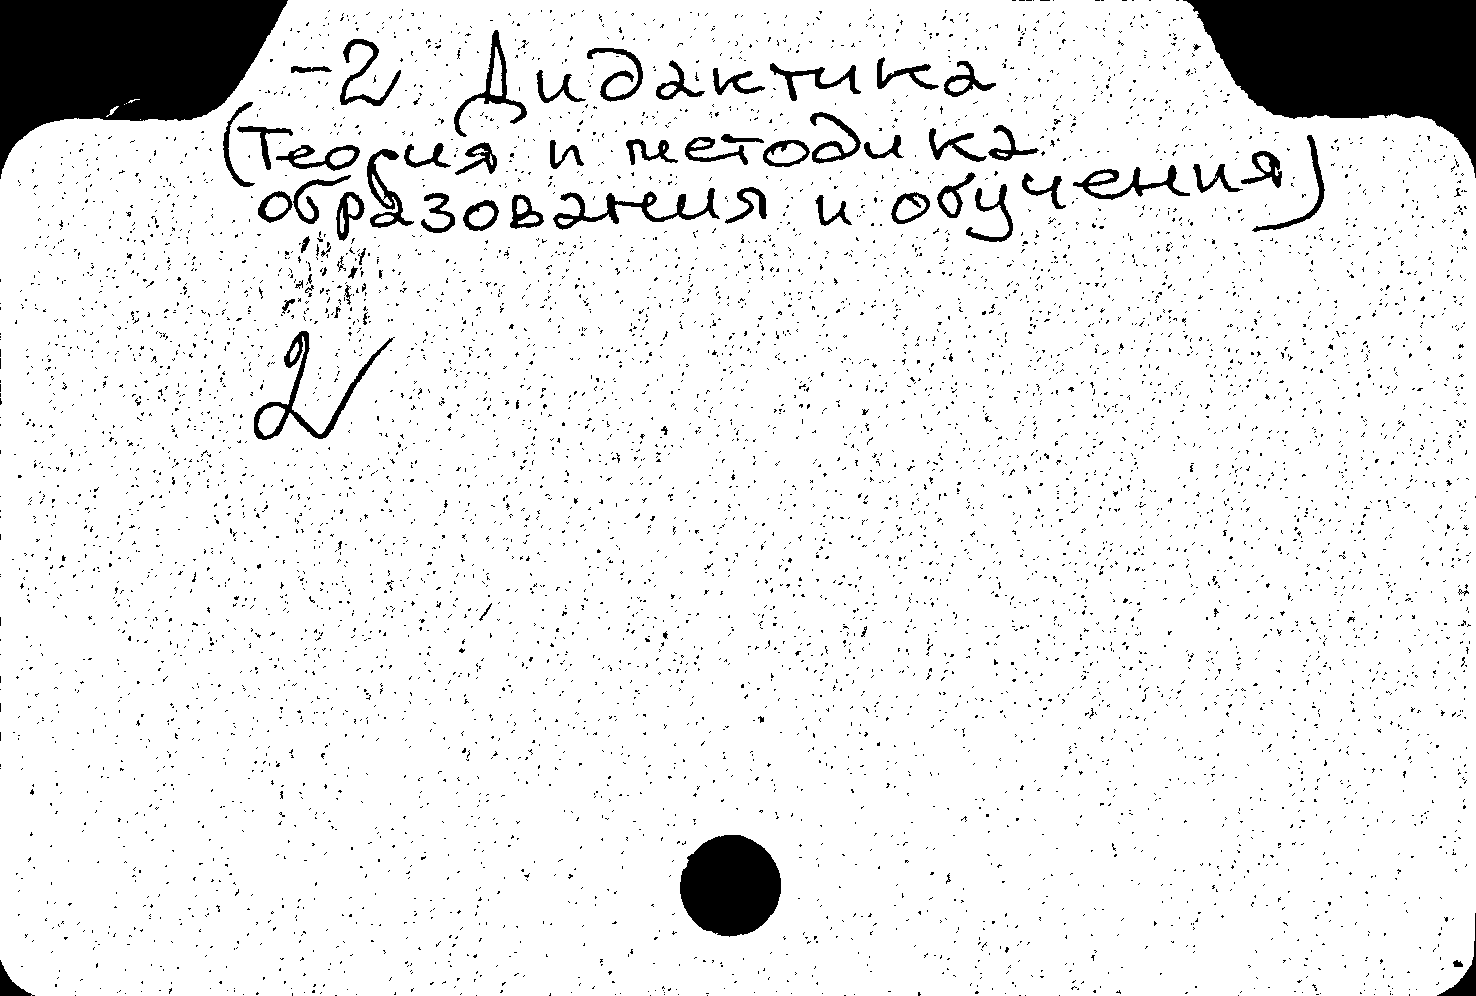 -2 Дидактика
(Теория и методика
образования и обучения)
2